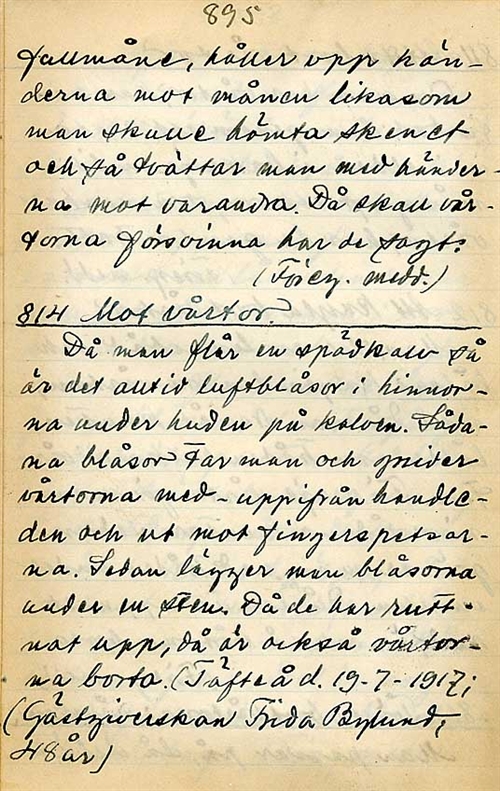 895
fullmåne, håller upp hän-
derna mot månen likasom
man skulle hämta skenet
och så tvättar man med händer-
na mot varandra. Då skall vår-
torna försvinna har de sagt.
(Föreg. medd.)
814 Mot vårtor.
Då man flår en spädkalv så
är det alltid luftblåsor i hinnor-
na under huden på kalven. Såda-
na blåsor tar man och gnider
vårtorna med - uppifrån handle-
den och ut mot fingerspetsar-
na. Sedan lägger man blåsorna
under en sten. Då de har rutt-
nat upp, då är också vårtor-
na borta. (Täfteå d. 19-7-1917;
(Gästgiverskan Frida Bylund,
48 år)